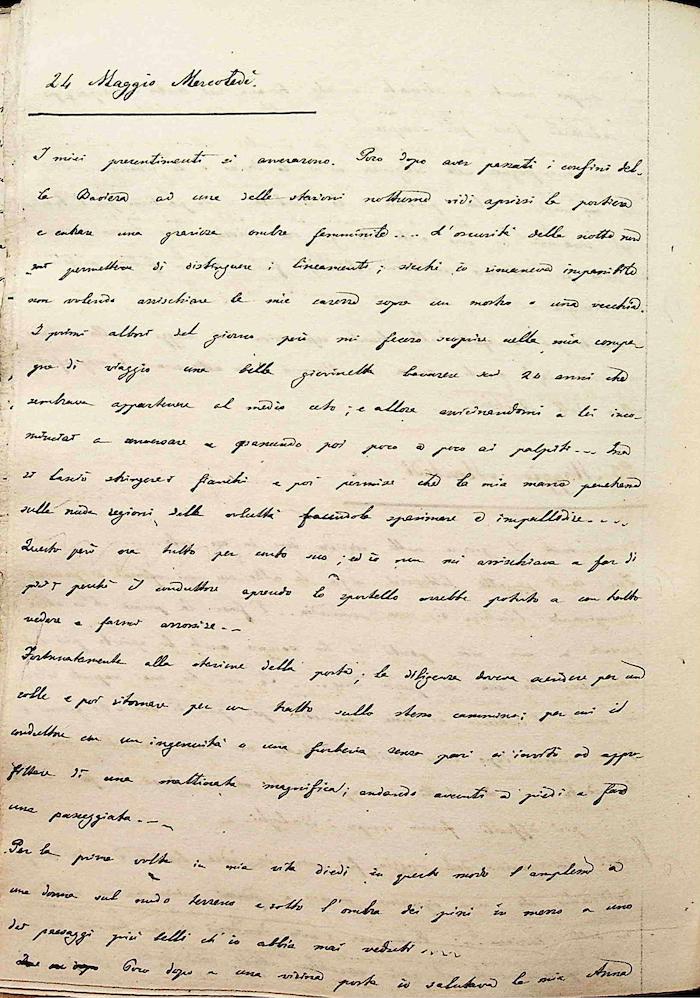 24 Maggio Mercoledì.
I miei presentimenti si avverarono. Poco dopo aver passati i confini del-
la Baviera ad una delle stazioni notturne vidi aprirsi la portiera
e entrare una graziosa ombra femminile.... L'oscurità della notte non
permetteva di distinguere i lineamenti; sicchè io rimaneva impassibile
non volendo arrischiare le mie carezze sopra un mostro o una vecchia.
I primi albori del giorno però mi fecero scoprire nella mia compa-
gna di viaggio una bella giovinetta bavarese sui 20 anni che
sembrava appartenere al medio ceto; e allora avvicinandomi a lei inco-
minciai a conversare e passando poi poco a poco ai palpiti....
si lasciò stringere i fianchi e poi permise che la mia mano penetrasse
sulle nude regioni della voluttà facendola spasimare e impallidire....
Questo però era tutto per conto suo; ed io non mi arrischiava a far di
più perchè il conduttore aprendo lo sportello avrebbe potuto a un tratto
vedere e farmi arrossire...
Fortunatamente alla stazione della posta; la diligenza doveva ascendere per un
colle e poi ritornare per un tratto sullo stesso cammino; per cui il
conduttore con un ingenuità o una furberia senza pari ci invitò ad appro-
fittare di una mattinata magnifica; andando avanti a piedi a fare
una passeggiata...
Per la prima volta in mia vita diedi in questo modo l'amplesso a
una donna sul nudo terreno e sotto l'ombra dei pini in mezzo a uno
dei paesaggi più belli ch'io abbia mai veduti.....
Poco dopo a una vicina posta io salutava la mia Anna